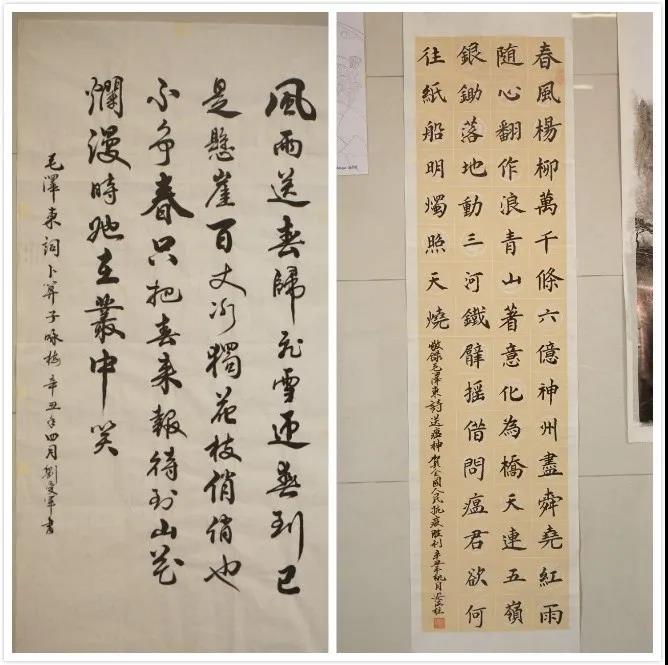 風雨送春歸飛雪迎春到已
是懸崖百丈冰獨花枝俏俏也
不争春只把春来報待到山花
爛漫時她在叢中笑
毛澤東詞卜算子咏梅辛丑年四月劉爱军书
春風楊柳萬千條六億神州盡舜堯紅雨
随心翻作浪青山著意化為橋天連五嶺
銀鋤落地動三河鐵臂摇借問瘟君欲何
往紙船明燭照天燒
敬録毛澤東詩送瘟神賀全國人民抗疫胜利辛丑年桃月